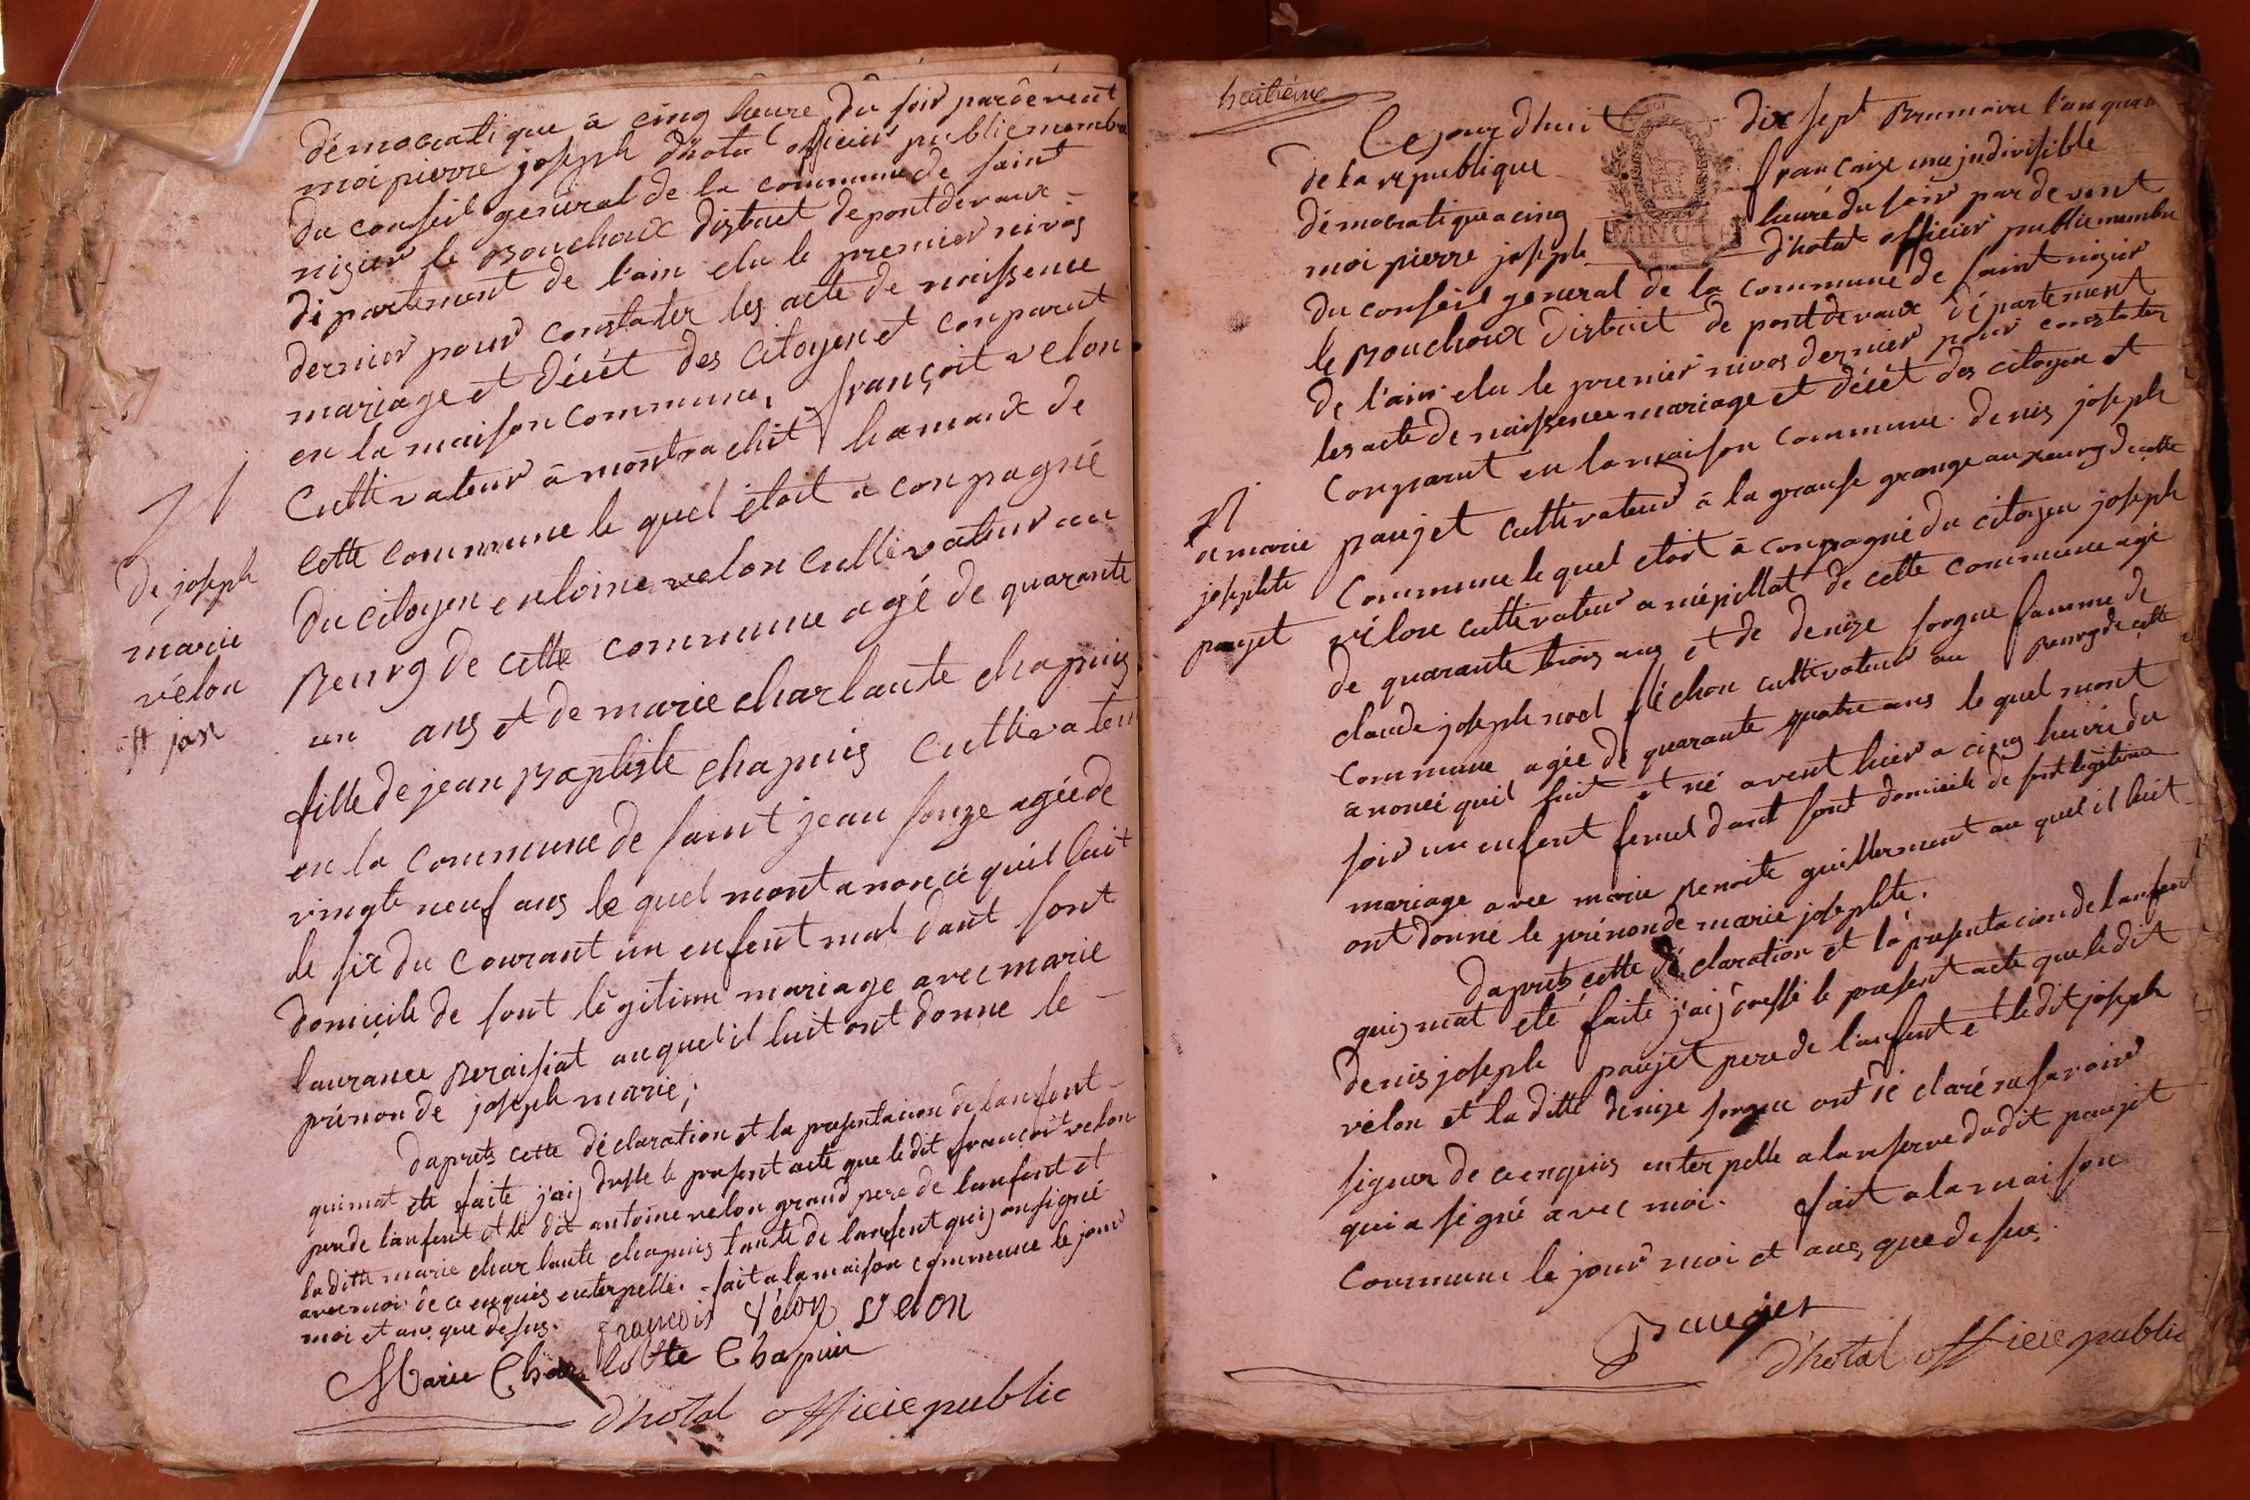 démocratique à cinq heure du soir pardevent
moi pierre joseph d'hotal officier public membre
du conseil general de la commune de saint
nizier le Bouchoux distruit de pontdevaux
dipartement de l'ain elu le premier nivos
dernier pour constater les acte de naissence
mariage et décét des citoyen et conparut
en la maison commune, françoit velon
Cultivateur à montrachit hamaux de
cette commune le quel étoit a conpagné
Du citoyen entoine velon cultivateur au
Bourg de cette commune agé de quarante
un ans et de marie charlaute chapuis
fille de jean Baptiste chapuis cultivateur
en la commune de saint jean
vingte neuf ans le quel mont anoncé quil luit
le six du courant un enfent mal dant sont
domicile de sont légitime mariage avec marie
laurance Beraisiat auquel il luit ont donne le
prénon de joseph marie;
daprêts cette déclaration et la presentacion de lanfent
quimat ete faite j'aij dressé le present acte que le dit françoit velon
pere de lanfent et le dit antoine velon grand pere de lanfent et
la ditte marie charlaute chapuis tante de lanfent quij on signé
avec moi de ce enquis enterpellé. fait a la maison commune le jour
moi et ans que desus.
françois vélon velon
Marie Charlotte Chapuis
d'hotal officie public
N
de joseph
marie
vélon
huitiéme
Ce jourd'huit dix sept Brumaire l'an
de la republique francaise une indivisible
démocratique a cinq heure du soir pardevent
moi pierre joseph d'hotal officier public membre
du conseil general de la commune de saint nizier
le Bouchoux distruit de pontdevaux département
de l'ain elu le premier nivos dernier pour constater
les acte de naissence mariage et décét des citoyen et
conparut en la maison commune denis joseph
paujet cultivateur à la grange au Bourg de cette
commune le quel etoit à conpagné du citoyen joseph
vélon cultivateur a mépillat de cette commune agé
de quarante trois ans et de denize sorgue famme de
claude joseph noel cultivateur au Bourg de cette
commune agée de quarante quatre ans le quel mont
anoncé quil luit et né avent hier a cinq heure du
soir un enfent femel dant sont domicile de sont legitime
mariage avec marie Benoite guillermont au quel il luit
ont donné le prénon de marie josephte.
daprêts cette déclaration et la presentacion de lanfent
quij mat eté faite j'aij dressé le present acte que le dit
denis joseph paujet pere de l'anfent et le dit joseph
vélon et la ditte denize sorgue ont déclaré ne savoir
signer de ce enquis enterpellé a la reserve dudit paujet
qui a signé avec moi. fait a la maison
commune le jour moi et ans que desus.
Paujet
d'hotal officie public
N
a marie
josephte
paujet